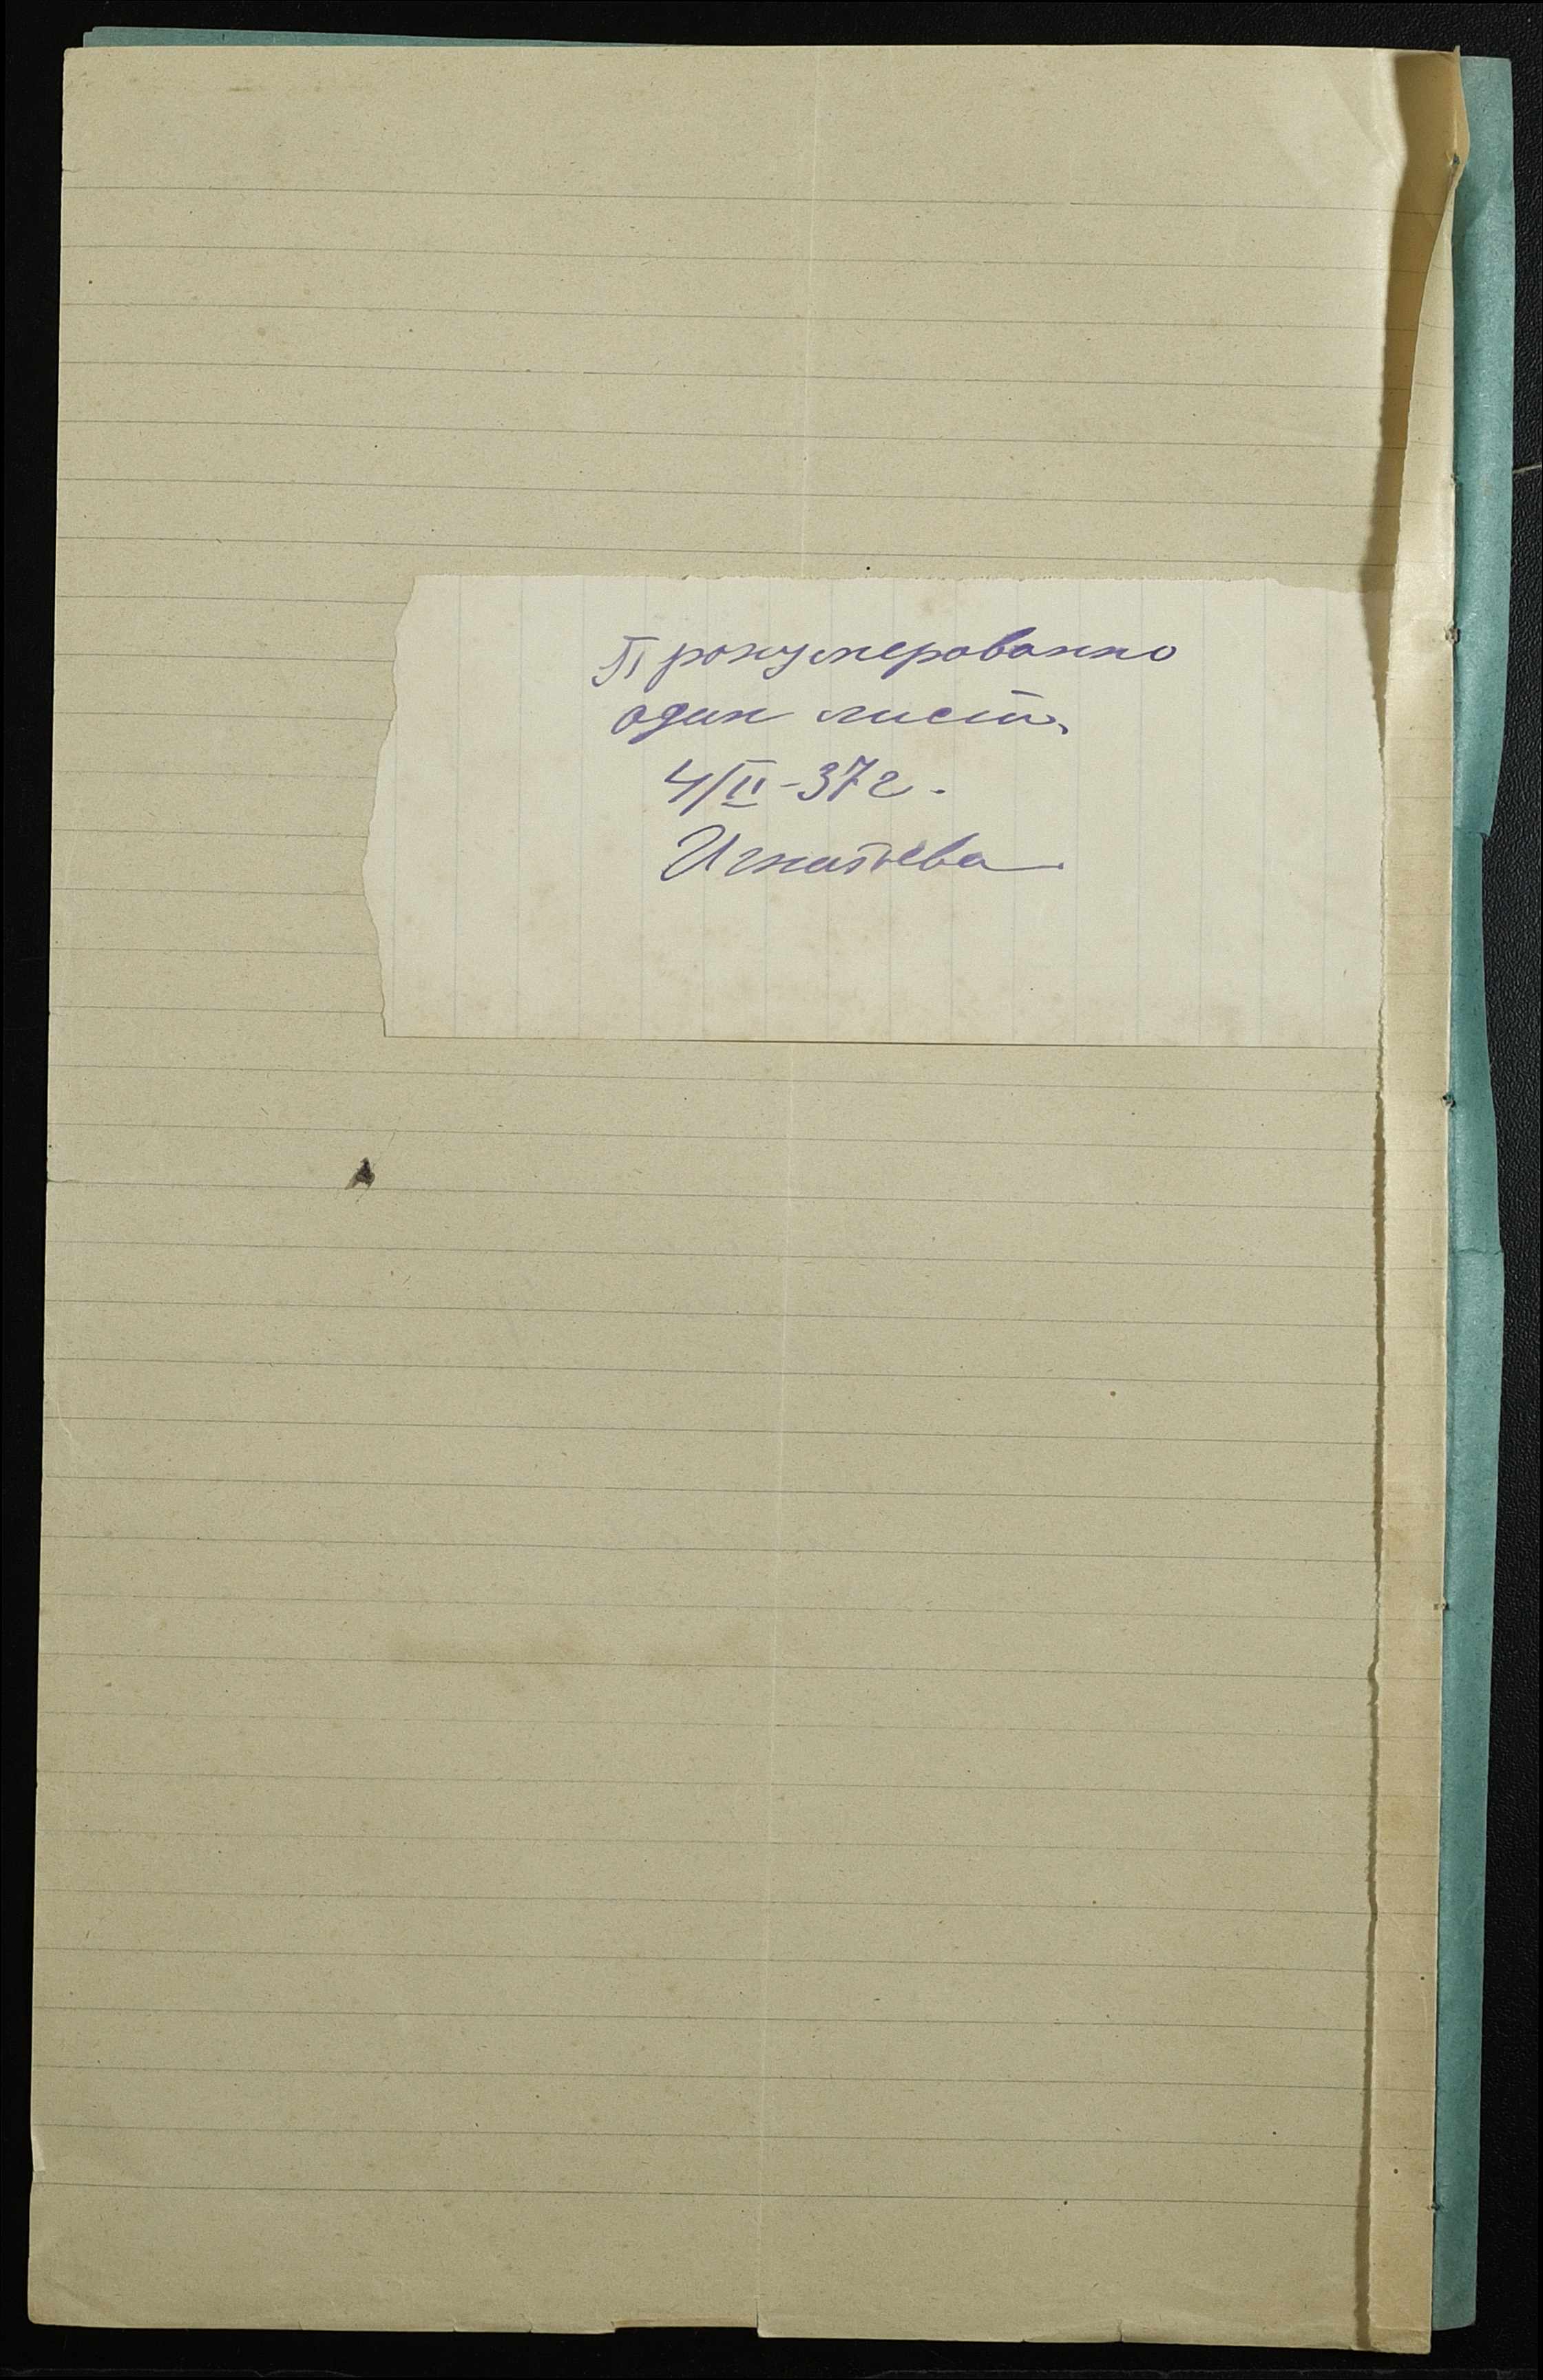 Пронумерованно
один лист.
4/II-37г.
Игнатьева